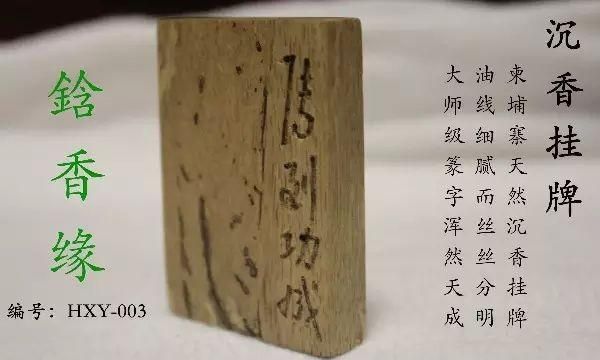 沉香挂牌
柬埔寨天然沉香挂牌
油线细腻而丝丝分明
大师级篆字浑然天成
马到功成
鋡香缘
编号：HXY-003